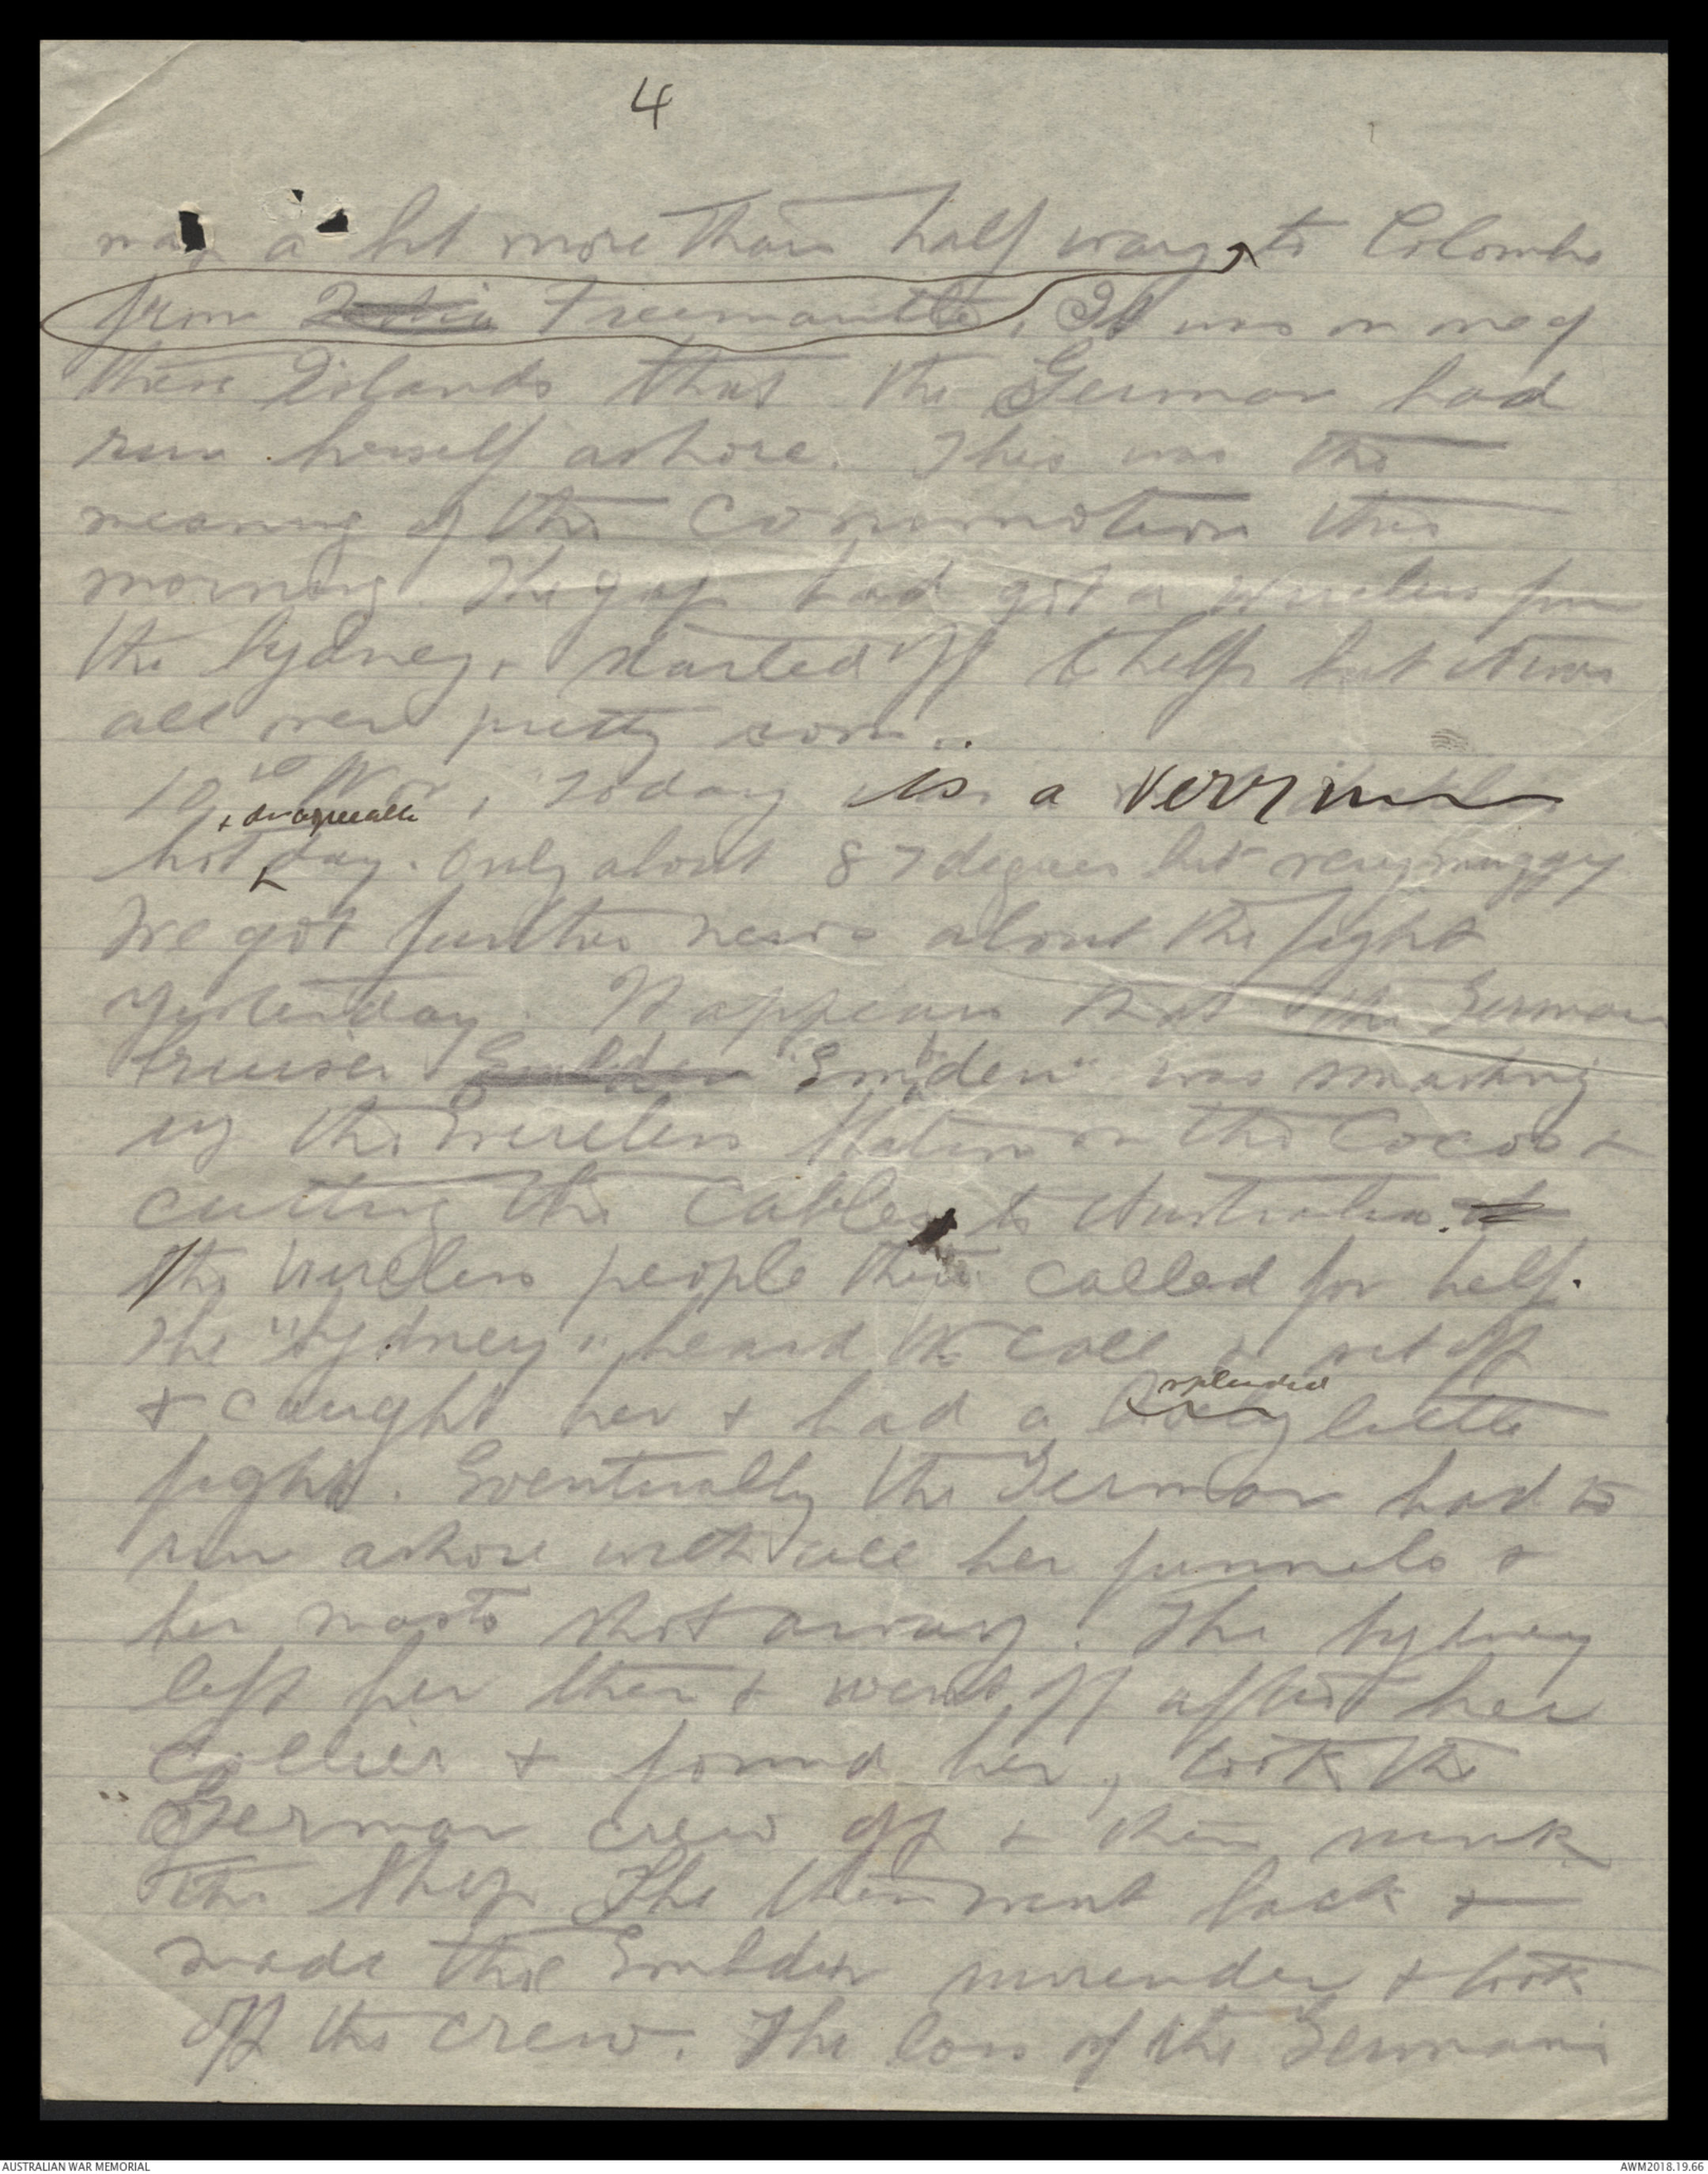 4
was a bit more than half way to Colombo
from Freemantle. It was on one of
these Islands that the German had
run herself ashore. This was the
meaning of the Commotion this
morning. The Jap had got a wireless from
the Sydney, & started off to help but it was
all over pretty soon.
10th Nov, Today is a very
+ disagreeable
hot day. Only about 87 degrees but very muggy
We got further news about the fight
Yesterday. It appears that the German
Cruiser Embden "Emden" was smashing
up the wireless Station on the Cocos &
cutting the Cables to Australia.
The wireless people there called for help.
The "Sydney" heard the call & set off
splendid
& caught her & had a little
fight. Eventually the German had to
run ashore with all her funnels &
her masts shot away. The Sydney
left her there & went off after her
Collier & found her, took the
German crew off & then sunk
the ship. She then went back &
made the Embden surrender & took
off the crew. The loss of the Germans
AUSTRALIAN WAR MEMORIAL
AWM2018.19.66